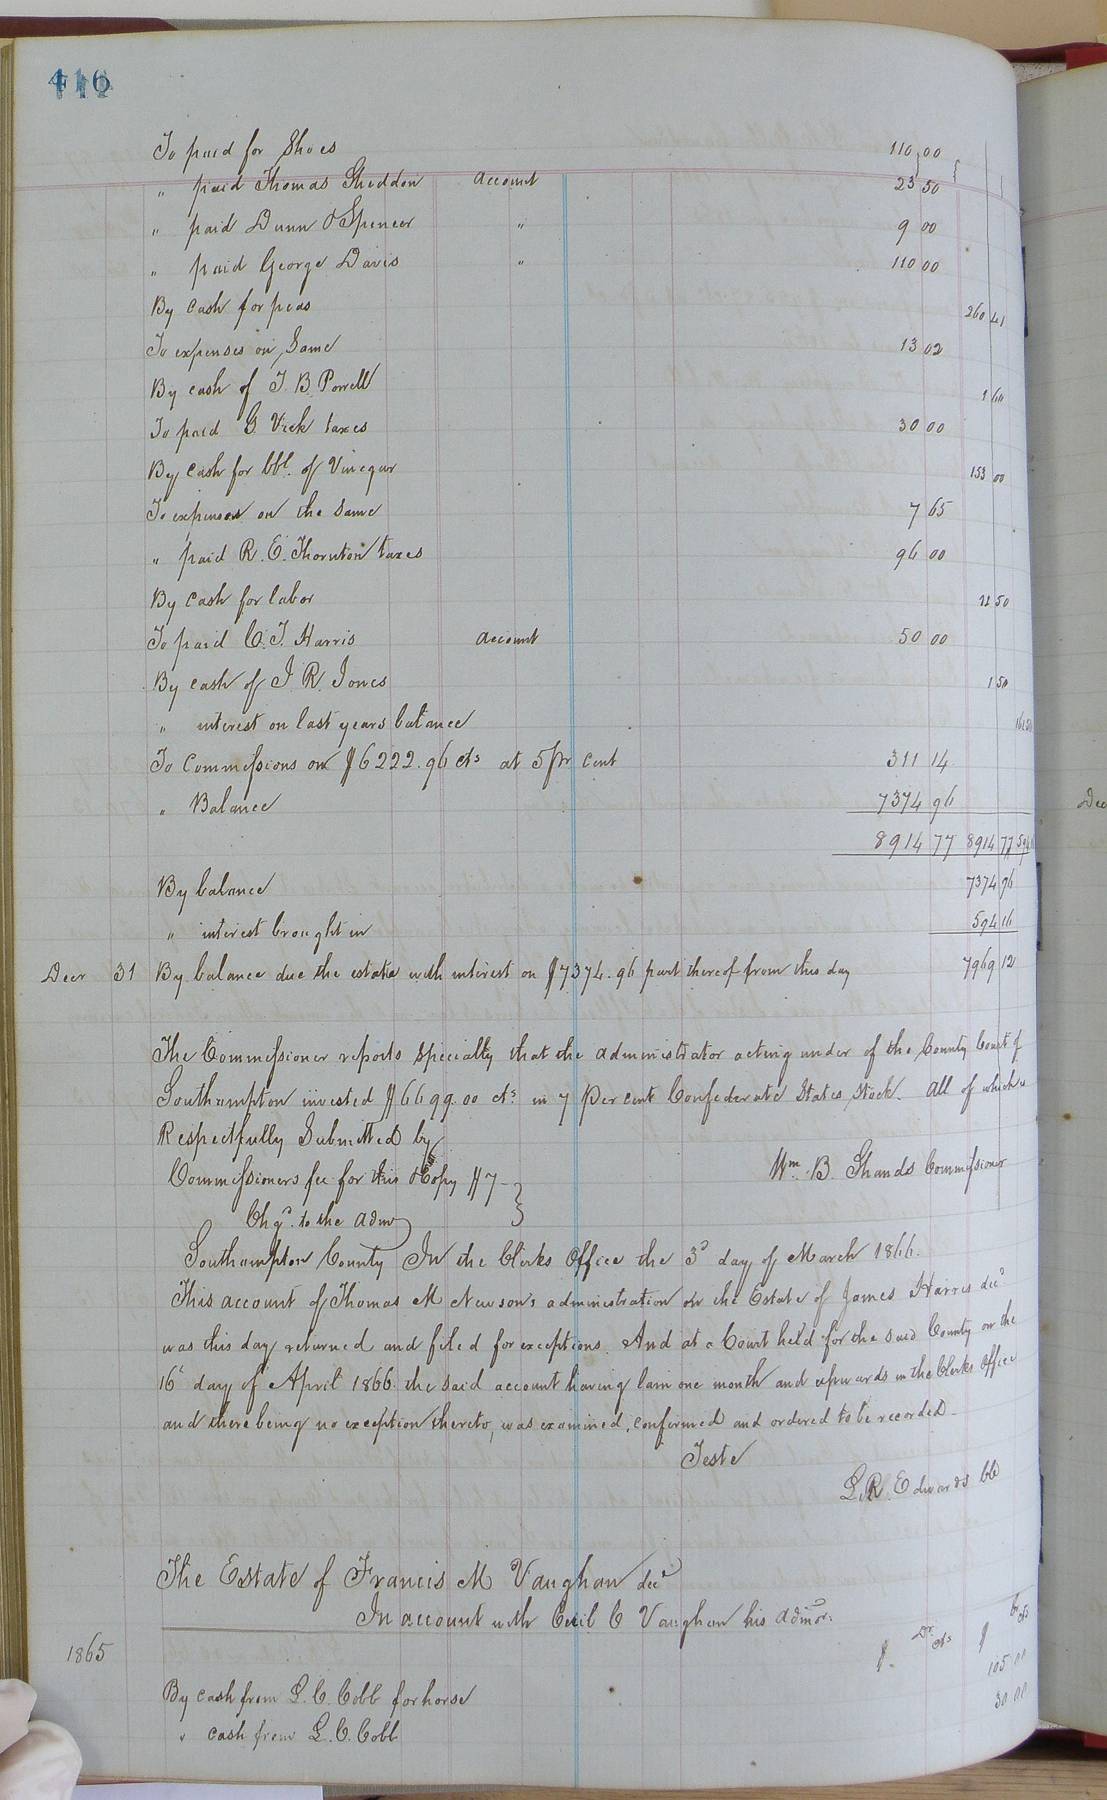 416
To paid for Shoes 110.00
" paid Thomas Gheddon account 23 50
" paid Dunn & Spencer " 9 00
" paid George Davis " 110 00
By cash for peas 260 41
To expenses on Same 13 02
By cash of J. B. Powell
To paid G. Vick taxes 30 00
By cash for bbl. of Vinegar 153 00
To expenses on the same 7 65
" paid R. E. Thornton taxes 96 00
By cash for labor 50
To paid C. T. Harris account 50 00
By cash of J. R. Jones 1 50
" interest on last years balance
To Commissions on $6222.96 cts at 5 Pr cent 311 14
" Balance 7374 96
8914 77 8914 77
By balance 7374 96
" interest brought in 594 16
Decr 31 By balance due the estate with interest on $7374.96 part thereof from this day 7969 12
The Commissioner reports specially that the administrator acting under of the County Court of
Southampton invested $6699.00 cts in 7 Per cent Confederate States Stock. All of which is
Respectfully Submitted by
Commissioners fee for this & Copy $7- Wm. B. Shands Commissioner
Chgd. to the adm
Southampton County In the Clerks Office the 3d day of March 1866.
This account of Thomas M Newsom's administration on the Estate of James Harris decd
was this day returned and filed for exceptions. And at a Court held for the said County on the
16 day of April 1866. the said account having lain one month and upwards in the Clerks Office
and there being no exception thereto, was examined, confirmed and ordered to be recorded-
Teste
L. R. Edwards CC
The Estate of Francis M Vaughan decd
In account with Cecil C Vaughan his admor.
1865 Dr. Cr
$. cts $ cts
By cash from L. C. Cobb for horse 105 00
" cash from L. C. Cobb 30 00